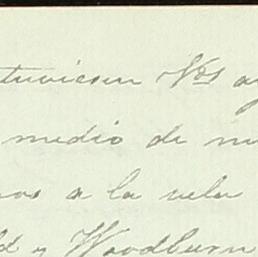 tuviesen Nos a
medio de m
nos a la vela
ld y Woodburn